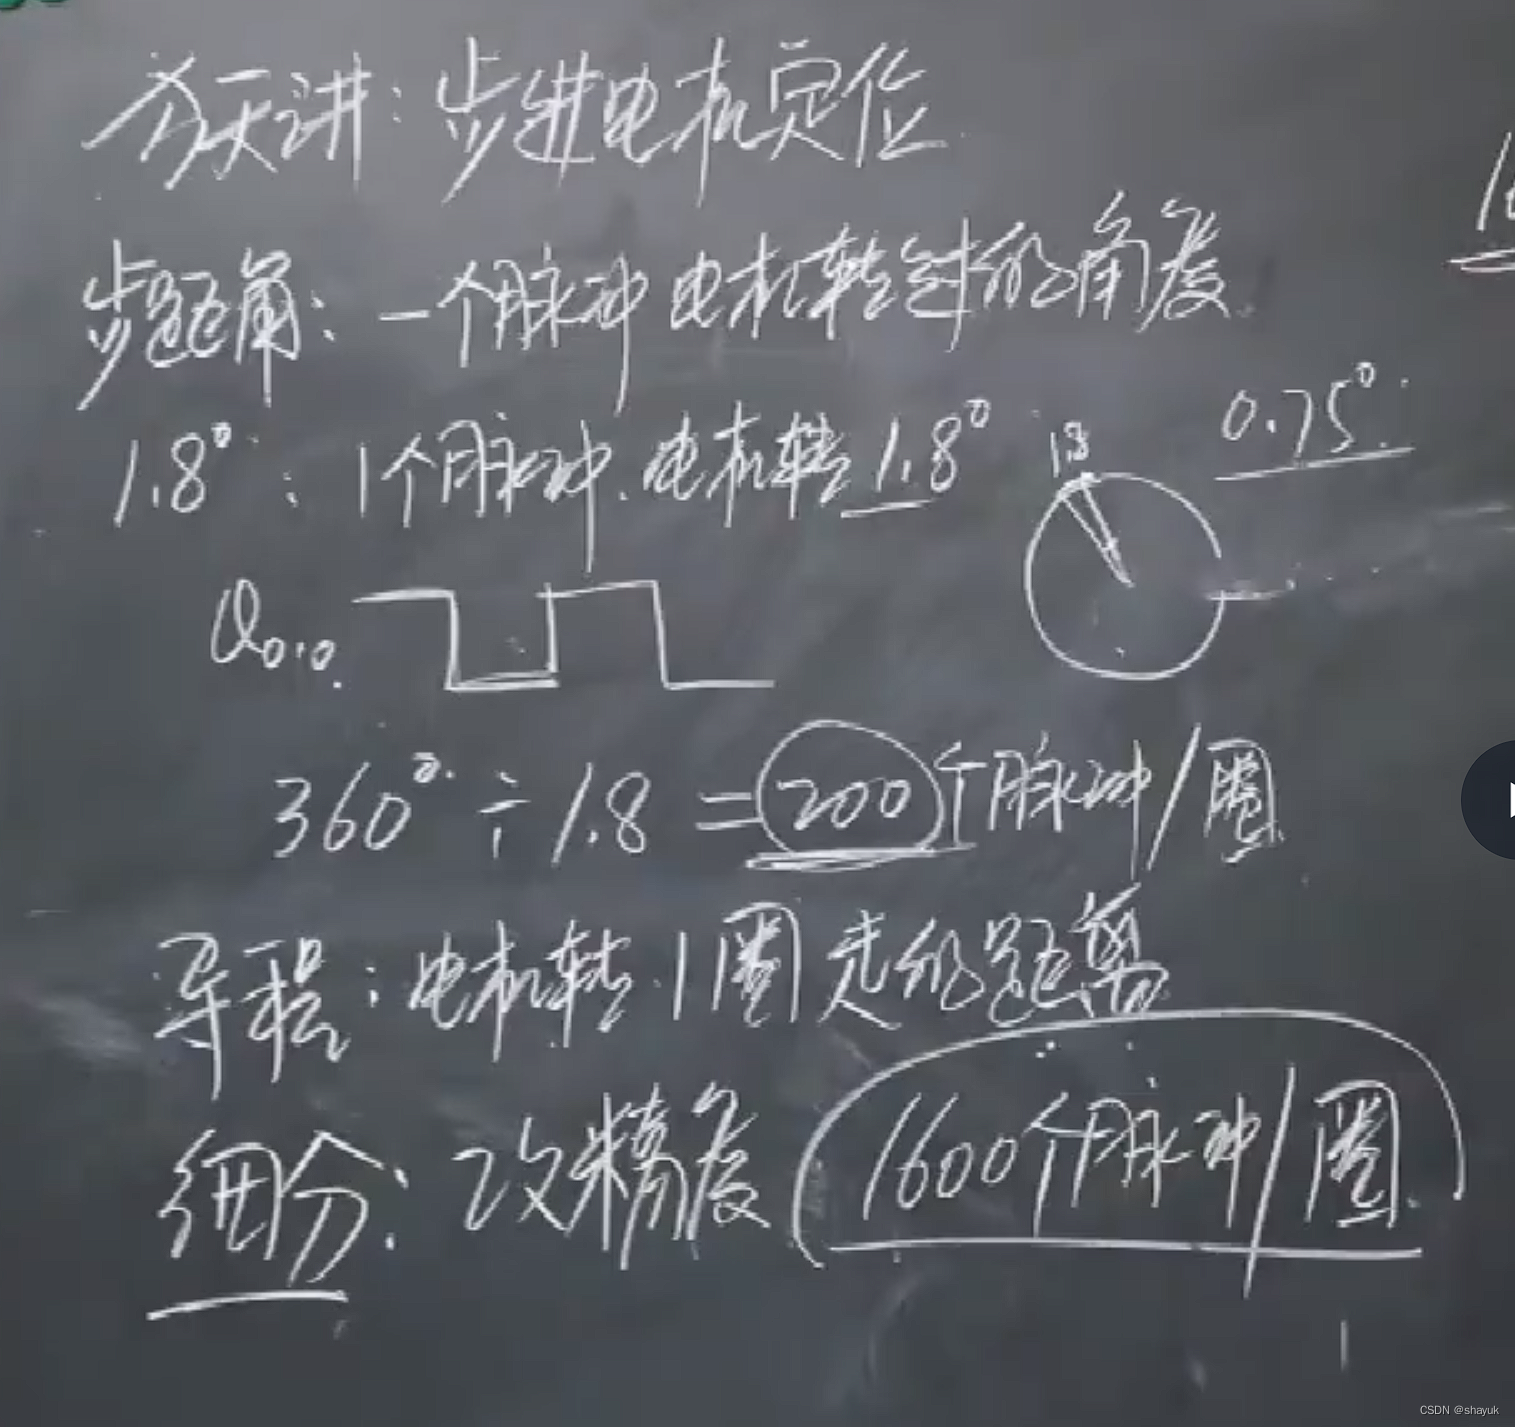 今天讲：步进电机定位
步距角：一个脉冲电机转过的角度
0.75°
1.8°：1个脉冲.电机转1.8°
1.8
Q0.0
360°÷1.8=200个脉冲/圈
导程：电机转1圈走的距离
细分：改精度 1600个脉冲/圈
CSDN @shayuk